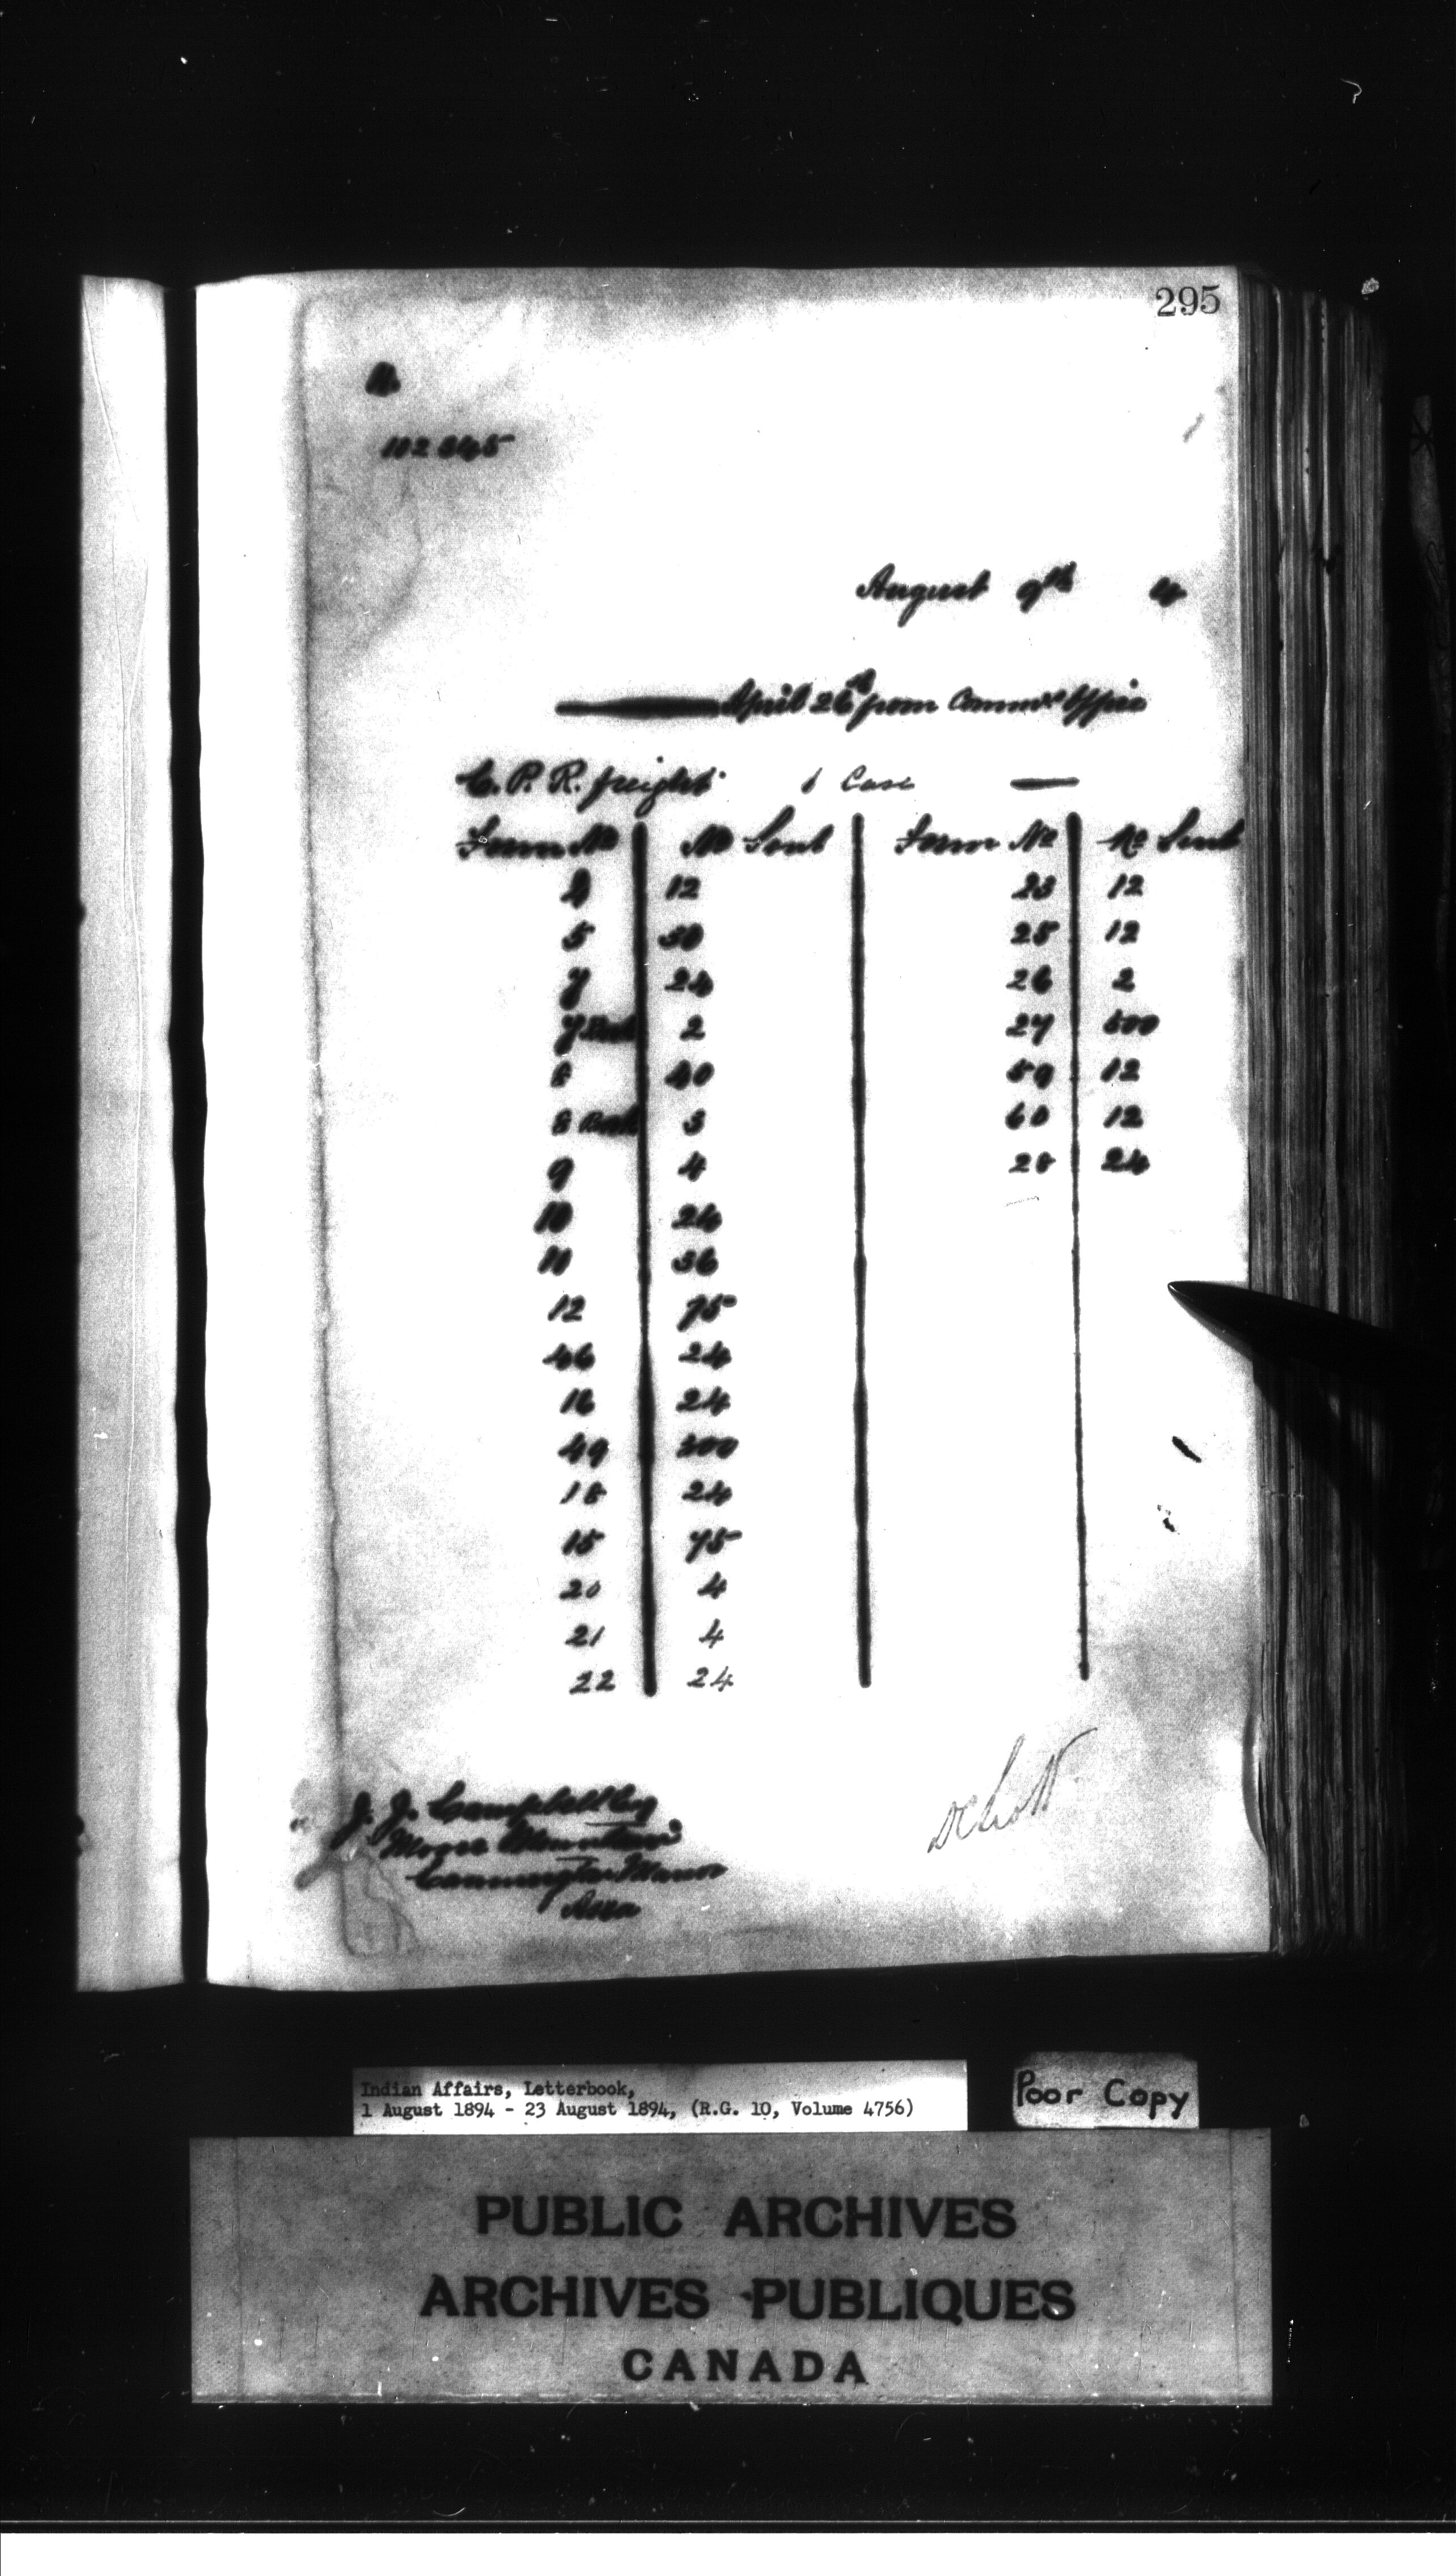 295
112345
August 9th 4
April 26th from Commrs Office
C.P.R. freight 1 Case —
Form No No Sent Form No No Sent
2 12 23 12
5 50 25 12
7 24 26 2
7 Book 2 27 500
8 40 59 12
8 Book 3 60 12
9 4 28 24
10 24
11 36
12 75
46 24
16 24
49 200
18 24
15 75
20 4
21 4
22 24
J. J. Campbell Esq
Moose Mountain
Cannington Manor
Assa
D C Scott
Indian Affairs, Letterbook,
1 August 1894 - 23 August 1894, (R.G. 10, Volume 4756)
Poor Copy
PUBLIC ARCHIVES
ARCHIVES PUBLIQUES
CANADA